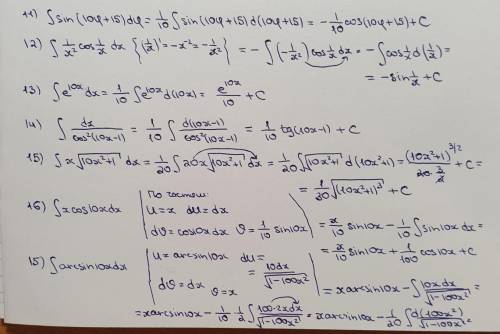 11) ∫sin(10φ+15)dφ = 1/10 ∫sin(10φ+15)d(10φ+15) = -1/10 cos(10φ+15)+C
12) ∫ 1/x² cos 1/x dx {(1/x)' = -x⁻² = -1/x²} = -∫(-1/x²)cos 1/x dx = -∫cos 1/x d(1/x) =
= -sin 1/x + C
13) ∫e^10x dx = 1/10 ∫e^10x d(10x) = e^10x/10 + C
14) ∫ dx/cos²(10x-1) = 1/10 ∫ d(10x-1)/cos²(10x-1) = 1/10 tg(10x-1) + C
15) ∫x√(10x²+1) dx = 1/20 ∫20x√(10x²+1) dx = 1/20 ∫√(10x²+1) d(10x²+1) = (10x²+1)^3/2 / (20·3/2) + C =
= 1/30 √(10x²+1)³ + C
16) ∫x cos10x dx | По частям:
u=x du=dx
dv=cos10x dx v=1/10 sin10x | = x/10 sin10x - 1/10 ∫sin10x dx =
= x/10 sin10x + 1/100 cos10x + C
15) ∫arcsin10x dx | u=arcsin10x du= = 10dx/√(1-100x²)
dv=dx v=x | = x arcsin10x - ∫ 10x dx/√(1-100x²) =
= x arcsin10x - 1/10 · 1/2 ∫ 100·2x dx/√(1-100x²) = x arcsin10x - 1/20 ∫ d(100x²)/√(1-100x²) =